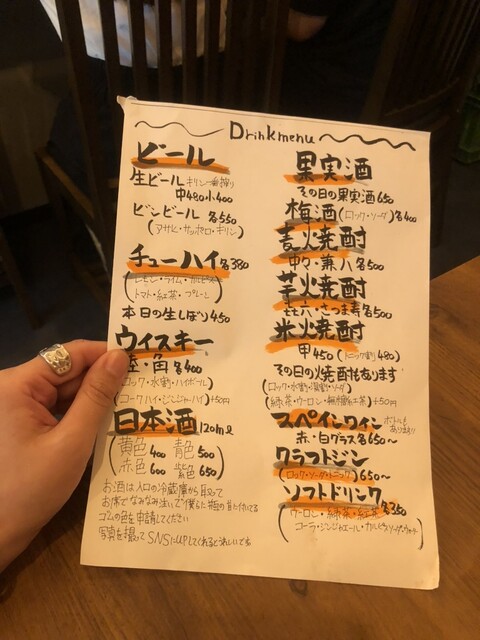 Drinkmenu
ビール
生ビール キリン一番搾り
中480 小400
ビンビール 各550
(アサヒ・サッポロ・キリン)
チューハイ 各380
(レモン・ライム・カルピス
トマト・紅茶・プレーン)
本日の生しぼり 450
ウイスキー
陸・角 各400
(ロック・水割・ハイボール)
(コークハイ・ジンジャハイ)+50円
日本酒 120ml
(黄色400 青色500
赤色600 紫色650)
お酒は入口の冷蔵庫から取って
お席でなみなみ注いで 僕らに瓶の首に付いてる
ゴムの色を申請してください
写真を撮ってSNSにUPしてくれるとうれしいです
果実酒
その日の果実酒 650
梅酒(ロック・ソーダ)各400
麦焼酎
中々・兼八 各500
芋焼酎
㐂六・さつま寿 各500
米焼酎
甲450 (トニック割 480)
その日の焼酎もあります
(ロック・水割・湯割・ソーダ)
(緑茶・ウーロン・無糖紅茶)+50円
スペインワイン ボトルも
あります!!
赤・白グラス 各650〜
クラフトジン
(ロック・ソーダ・トニック) 650〜
ソフトドリンク 各350
(ウーロン・緑茶・紅茶
コーラ・ジンジャエール・カルピスソーダ・ウォーター)